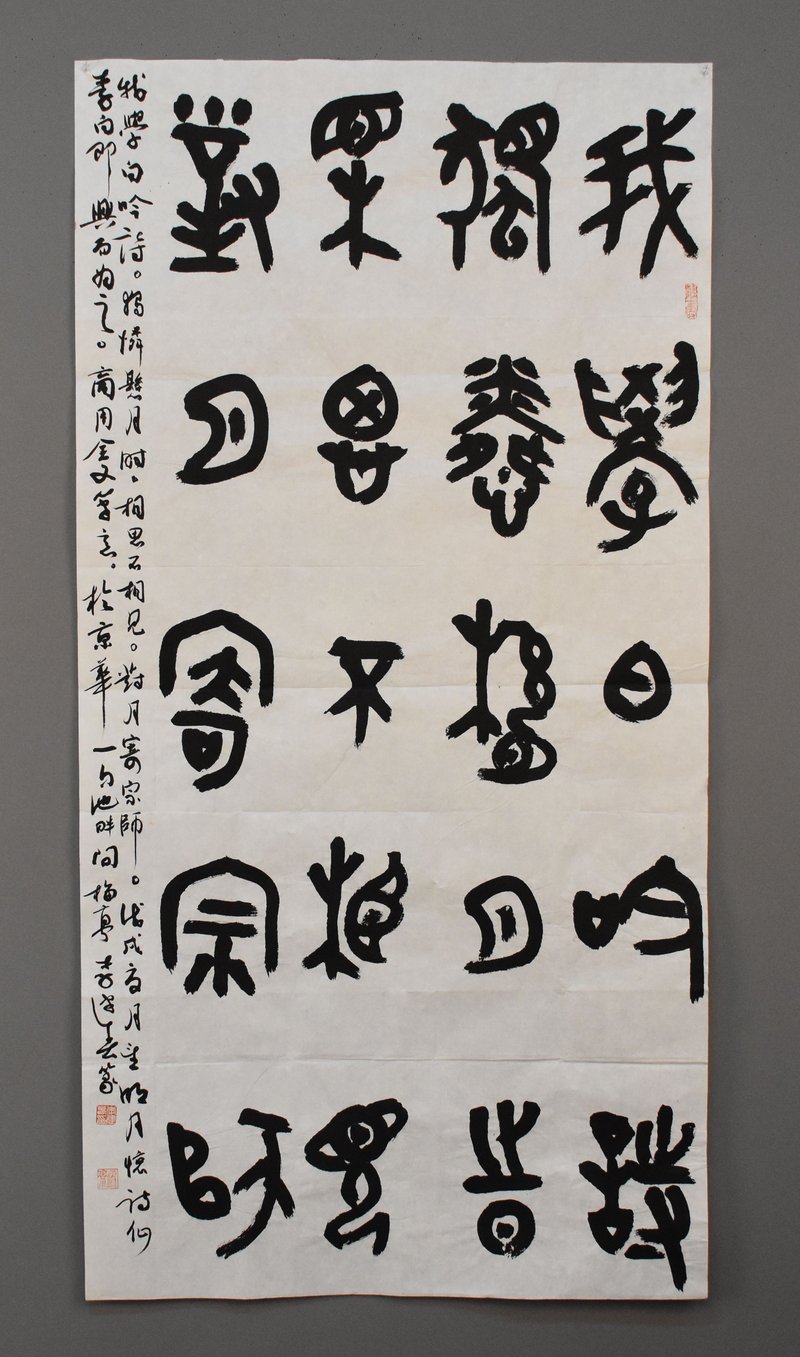 我學白吟詩
獨憐懸月時
相思不相見
對月寄宗師
我學白吟詩。獨憐懸月時、相思不相見。對月寄宗師。戊戌夏月望明月憶詩仙
李白即興而為之。商周金文筆意。於京華一勺池畔問梅亭李篆